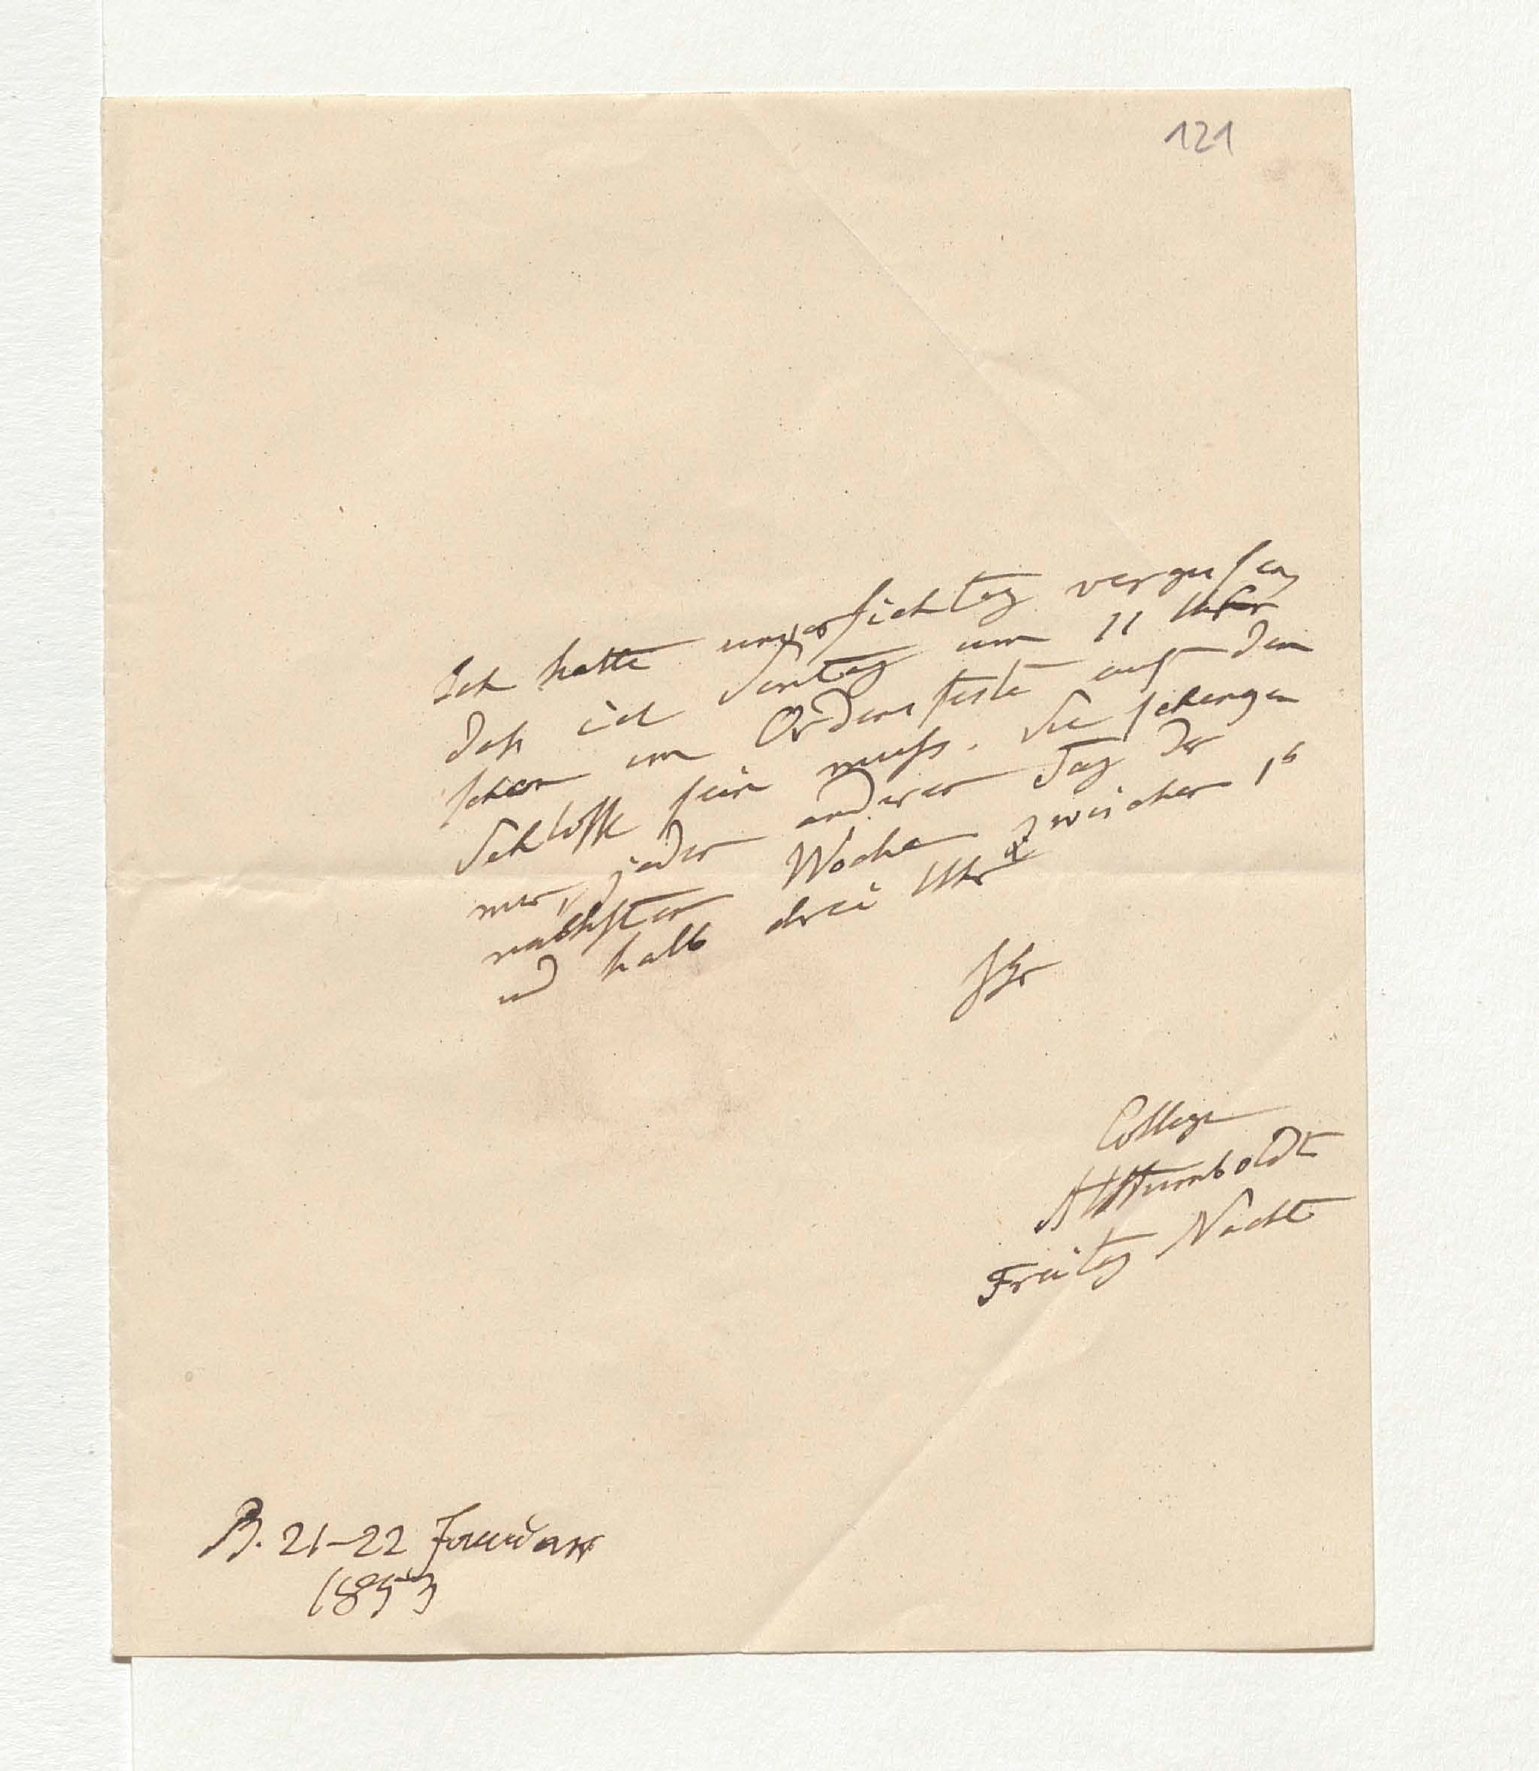 121
Ich hatte unvorsichtig vergessen
daß ich Sontag um 11 Uhr
schon am Ordensfeste auf dem
Schlosse sein muß. Sie schengen
mir, jeder anderer Tag der
nächsten Woche zwischen 1
und halb drei Uhr
Ihr
College
AlHumboldt
Freitag Nacht
B. 21-22 Januar
1853